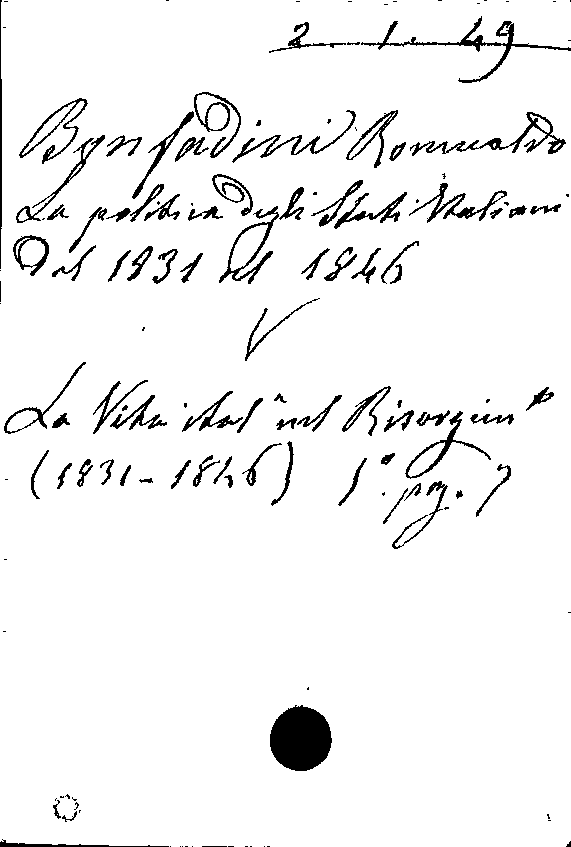 2. 1. 49
Bonfadini Romualdo
La politica degli Stati Italiani
dal 1831 al 1846
La Vita ital" nel Risorgim^to
(1831-1846) 1° pag. 7